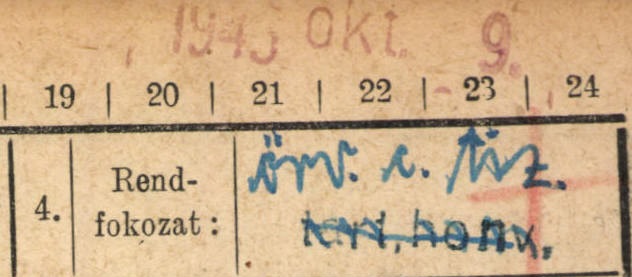 1943 OKT. 9.
19 | 20 | 21 | 22 | 23 | 24
4. Rend-
fokozat:
örv. c. tiz.
karp. honv.